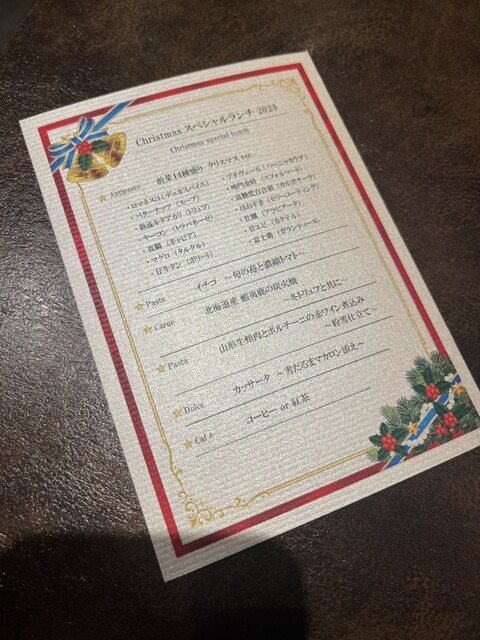 Christmas スペシャルランチ 2023
Christmas special lunch
Antipasto 前菜14種盛り クリスマスver.
・ロマネスコ（デュカスパイス）
・バターナッツ（スープ）
・熟成キタアカリ（トリュフ）
・ヤーコン（トラパネーゼ）
・真鯛（キャビア）
・マグロ（タルタル）
・甘牛タン（ボリート）
・プチヴェール（バーニャカウダ）
・鳴門金時（スフォルマート）
・高糖度百合根（カルボナーラ）
・ほおずき（ゼリーコーティング）
・牡蠣（アラビアータ）
・甘エビ（カクテル）
・富士鶏（ガランティーヌ）
Pasta イチゴ ～旬の苺と濃縮トマト～
Carne 北海道産 蝦夷鹿の炭火焼
～冬トリュフと共に～
Pasta 山形牛頬肉とポルチーニの赤ワイン煮込み
～粉雪仕立て～
Dolce カッサータ ～雪だるまマカロン添え～
Café コーヒー or 紅茶